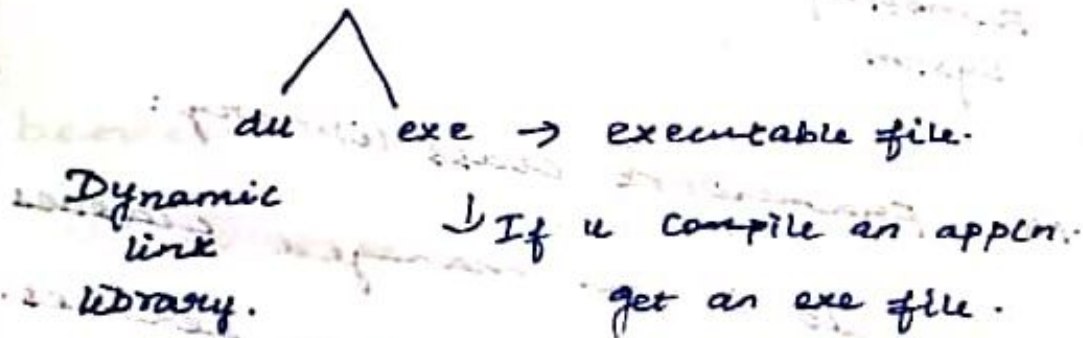 dll exe → executable file.
Dynamic
link
library.
↳ If u compile an appln.
get an exe file.